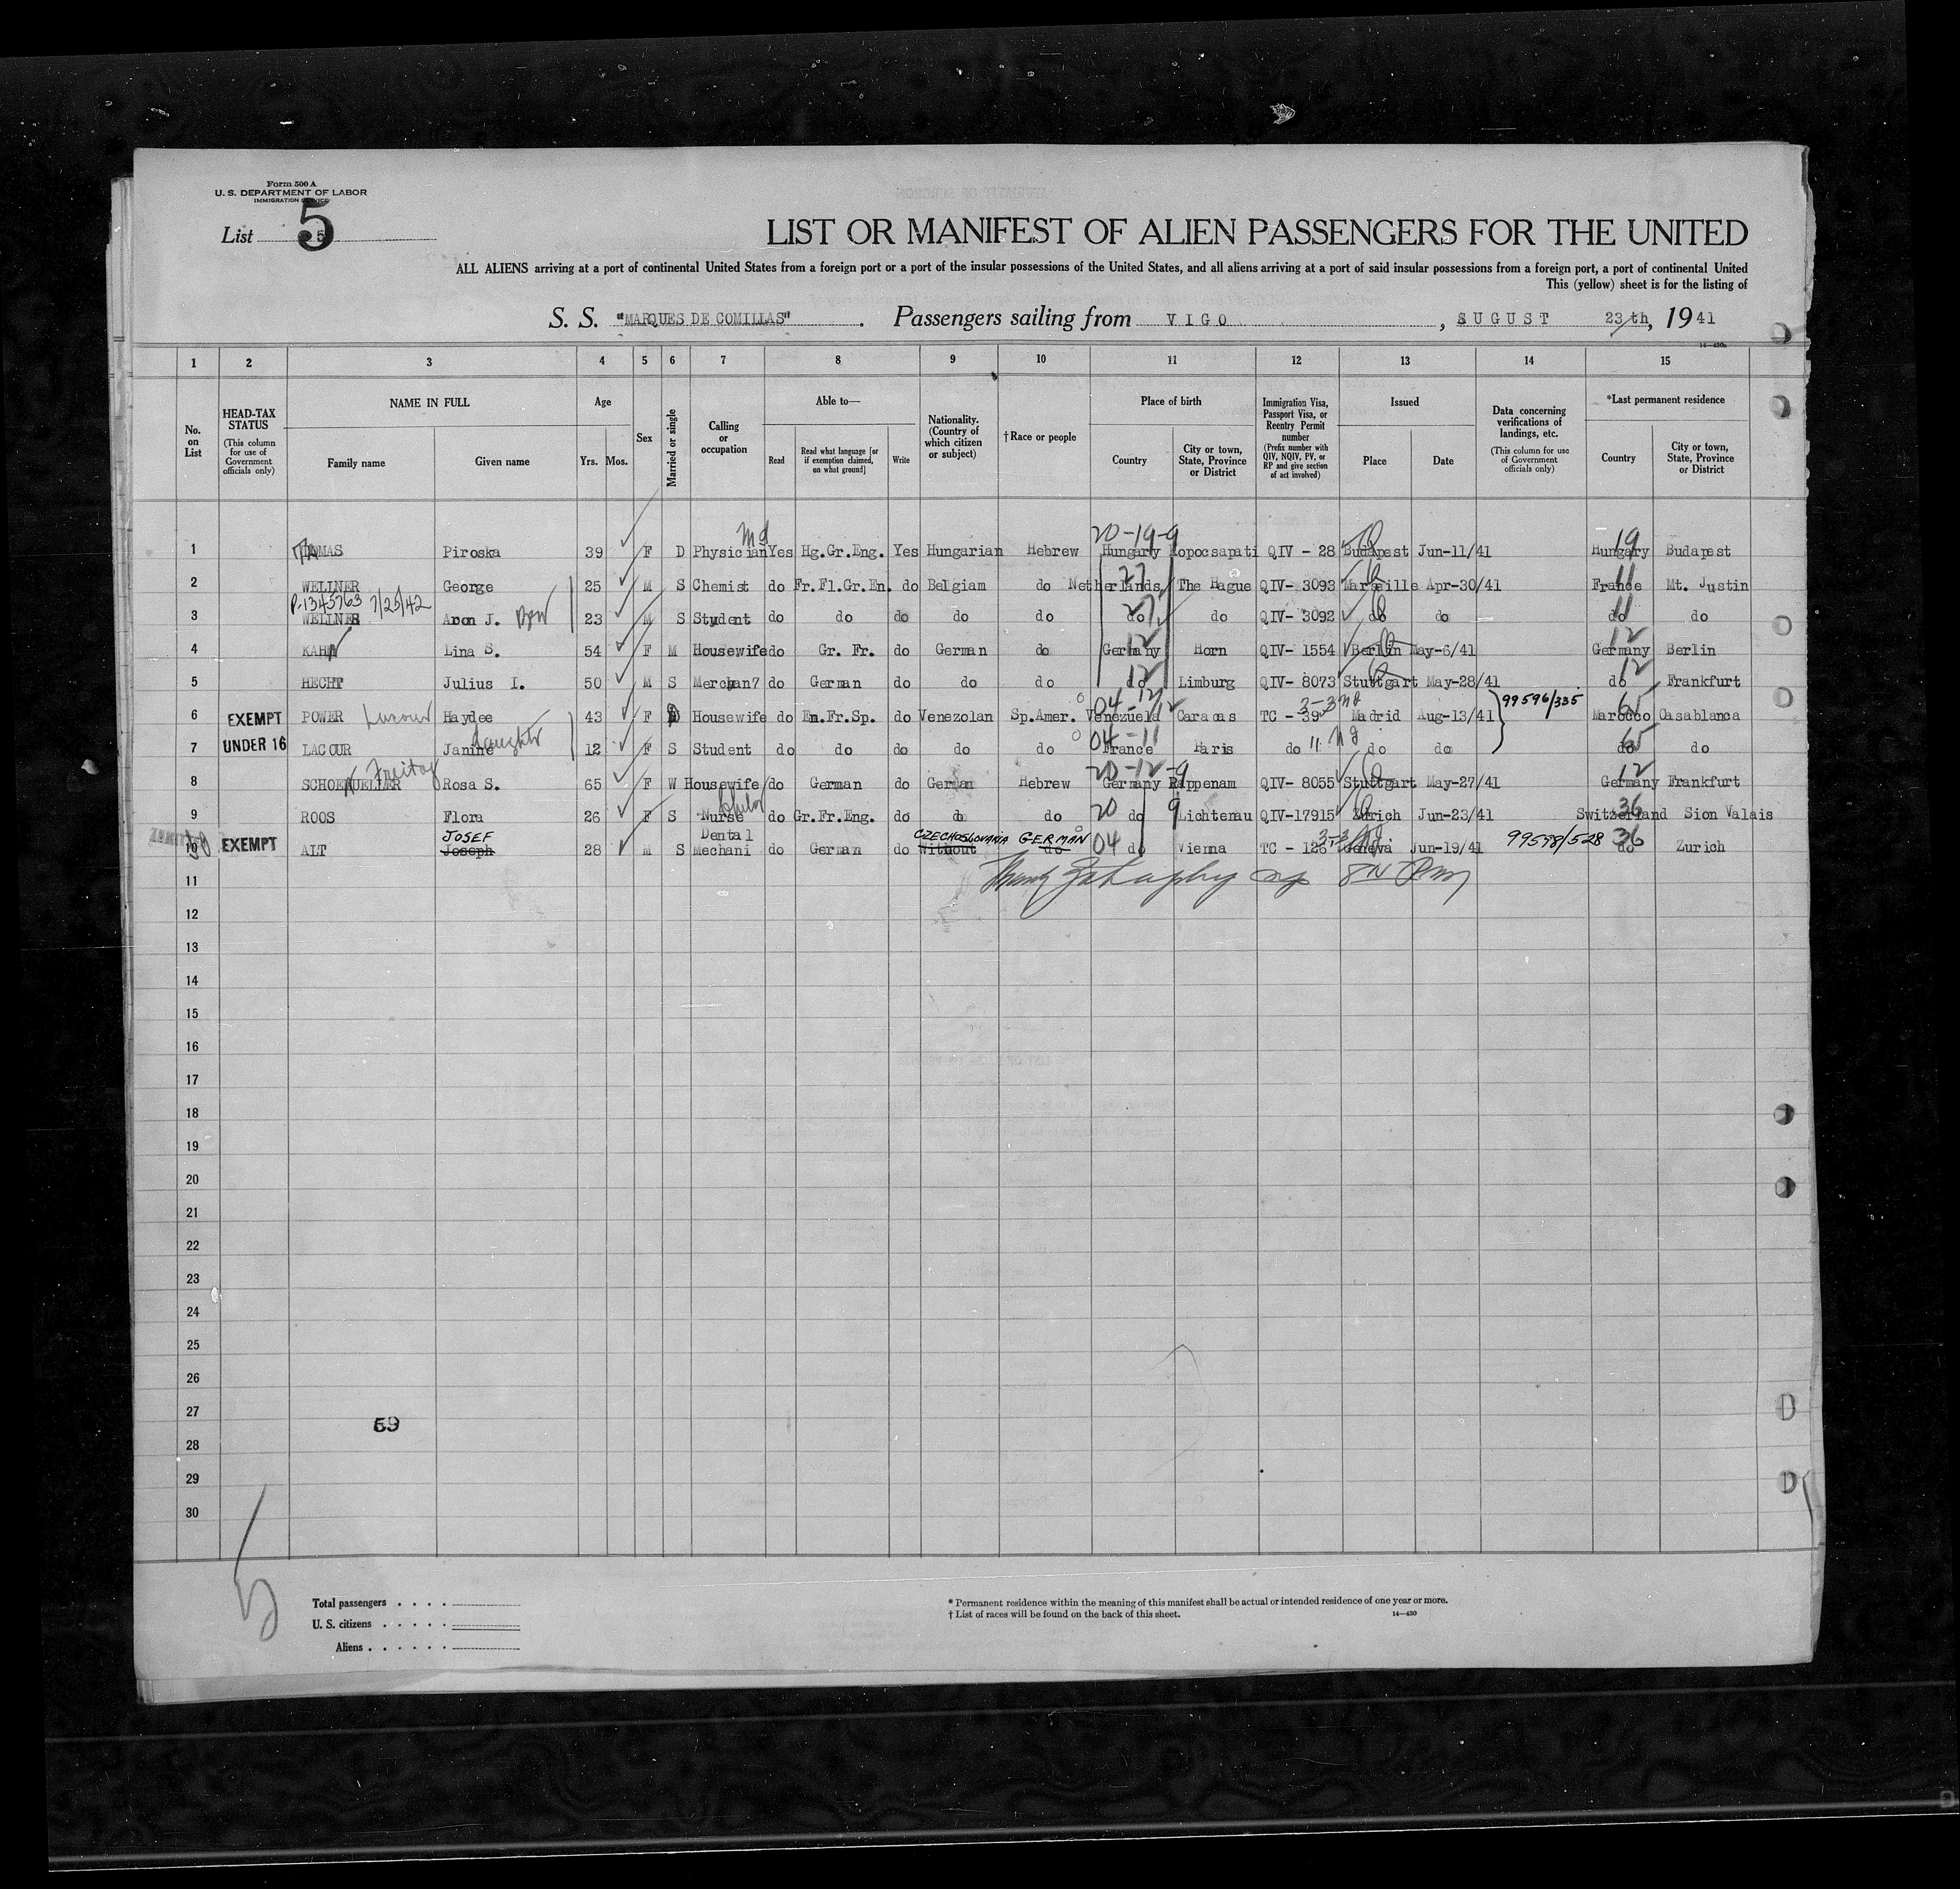 Form 500 A
U. S. DEPARTMENT OF LABOR
IMMIGRATION SERVICE
List 5
LIST OR MANIFEST OF ALIEN PASSENGERS FOR THE UNITED
ALL ALIENS arriving at a port of continental United States from a foreign port or a port of the insular possessions of the United States, and all aliens arriving at a port of said insular possessions from a foreign port, a port of continental United
This (yellow) sheet is for the listing of
S. S. "MARQUES DE COMILLAS". Passengers sailing from VIGO, AUGUST 23th, 1941
1 2 3 4 5 6 7 8 9 10 11 12 13 14 15
No. on List
HEAD-TAX STATUS (This column for use of Government officials only)
NAME IN FULL
Family name Given name
Age
Yrs. Mos.
Sex
Married or single
Calling or occupation
Able to—
Read Read what language [or if exemption claimed, on what ground] Write
Nationality. (Country of which citizen or subject)
†Race or people
Place of birth
Country City or town, State, Province or District
Immigration Visa, Passport Visa, or Reentry Permit number (Prefix number with QIV, NQIV, PV, or RP and give section of act involved)
Issued
Place Date
Data concerning verifications of landings, etc. (This column for use of Government officials only)
*Last permanent residence
Country City or town, State, Province or District
Md 20-19-9 19
1 Piroska 39 F D Physician Yes Hg.Gr.Eng. Yes Hungarian Hebrew Hungary Kopocsapati QIV - 28 Budapest Jun-11/41 Hungary Budapest
2 WELLNER George 25 M S Chemist do Fr.Fl.Gr.En. do Belgiam do Netherlands 27 The Hague QIV- 3093 Marseille Apr-30/41 France 11 Mt. Justin
P-1345763 7/25/42
3 WELLNER Aron J. 23 M S Student do do do do do do 27 do QIV- 3092 do do do 11 do
4 KAHN Lina S. 54 F M Housewife do Gr. Fr. do German do Germany 12 Horn QIV- 1554 Berlin May-6/41 Germany 12 Berlin
5 HECHT Julius I. 50 M S Merchan7 do German do do do do 12 Limburg QIV- 8073 Stuttgart May-28/41 do 12 Frankfurt
6 EXEMPT POWER Lacour Haydee 43 F D Housewife do En.Fr.Sp. do Venezolan Sp.Amer. 04-12 Venezuela Caracas TC - 39 3-3 Madrid Aug-13/41 99596/335 Marocco 65 Casablanca
daughter
7 UNDER 16 LACOUR Janine 12 F S Student do do do do do 04-11 France Paris do do do do 65 do
Freitag
8 SCHOENUELLER Rosa S. 65 F W Housewife do German do German Hebrew 20-12-9 Germany Rappenam QIV- 8055 Stuttgart May-27/41 Germany 12 Frankfurt
9 ROOS Flora 26 F S Nurse do Gr.Fr.Eng. do do do 20 do 9 Lichtenau QIV-17915 Zurich Jun-23/41 Switzerland 36 Sion Valais
JOSEF Dental CZECHOSLOVAKIA GERMAN
10 EXEMPT ALT Joseph 28 M S Mechani do German do Without do 04 do Vienna TC - 126 3-3 Geneva Jun-19/41 99598/528 do 36 Zurich
11
12
13
14
15
16
17
18
19
20
21
22
23
24
25
26
27
59
28
29
30
5
Total passengers
U. S. citizens
Aliens
* Permanent residence within the meaning of this manifest shall be actual or intended residence of one year or more.
† List of races will be found on the back of this sheet.
14—430